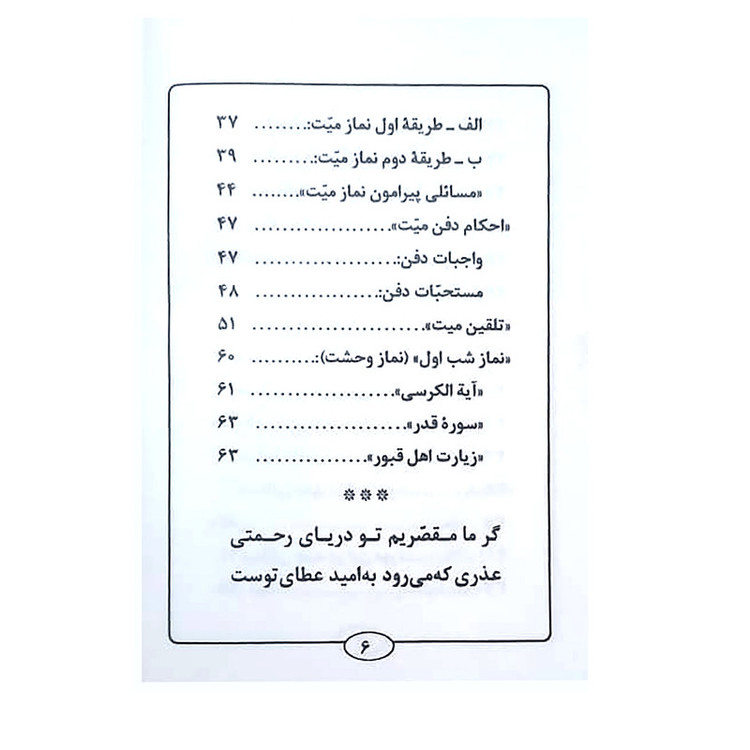 الف ـ طریقۀ اول نماز میّت:........ ۳۷
ب ـ طریقۀ دوم نماز میّت:......... ۳۹
«مسائلی پیرامون نماز میّت»........ ۴۴
«احکام دفن میّت».................... ۴۷
واجبات دفن:..................... ۴۷
مستحبّات دفن:.................. ۴۸
«تلقین میت»......................... ۵۱
«نماز شب اول» (نماز وحشت):.......... ۶۰
«آیة الکرسی»..................... ۶۱
«سورۀ قدر»...................... ۶۳
«زیارت اهل قبور»................. ۶۳
***
گر ما مـقصّریم تـو دریـای رحـمتی
عذری که می‌رود به‌امید عطای توست
۶